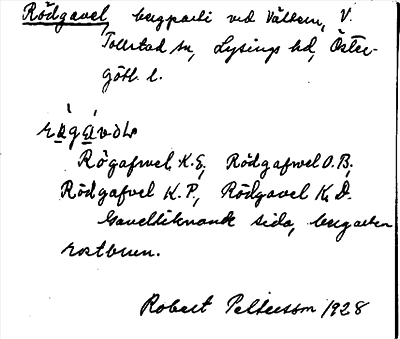 Rödgavel, bergparti vid Vättern, V.
Tollstad sn, Lysings hd, Öster-
götl. l.
Rögafwel K.E., Rödgafwel O.B.,
Rödgafvel K.P., Rödgavel K.D.
Gavelliknande sida, bergarten
rostbrun.
Robert Pettersson 1928